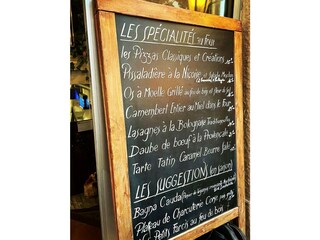 LES SPÉCIALITÉS au Four
Les Pizzas Classiques et Créations
Pissaladière à la Niçoise
Os à Moelle Grillé au feu de bois et fleur de sel
Camembert Entier au Miel dans le Four
Lasagnes à la Bolognaise
Daube de boeuf à la Provençale
Tarte Tatin Caramel Beurre Salé
LES SUGGESTIONS (en saison)
Bagna Cauda
Plateau de Charcuterie Corse
Petits Farcis au feu de bois